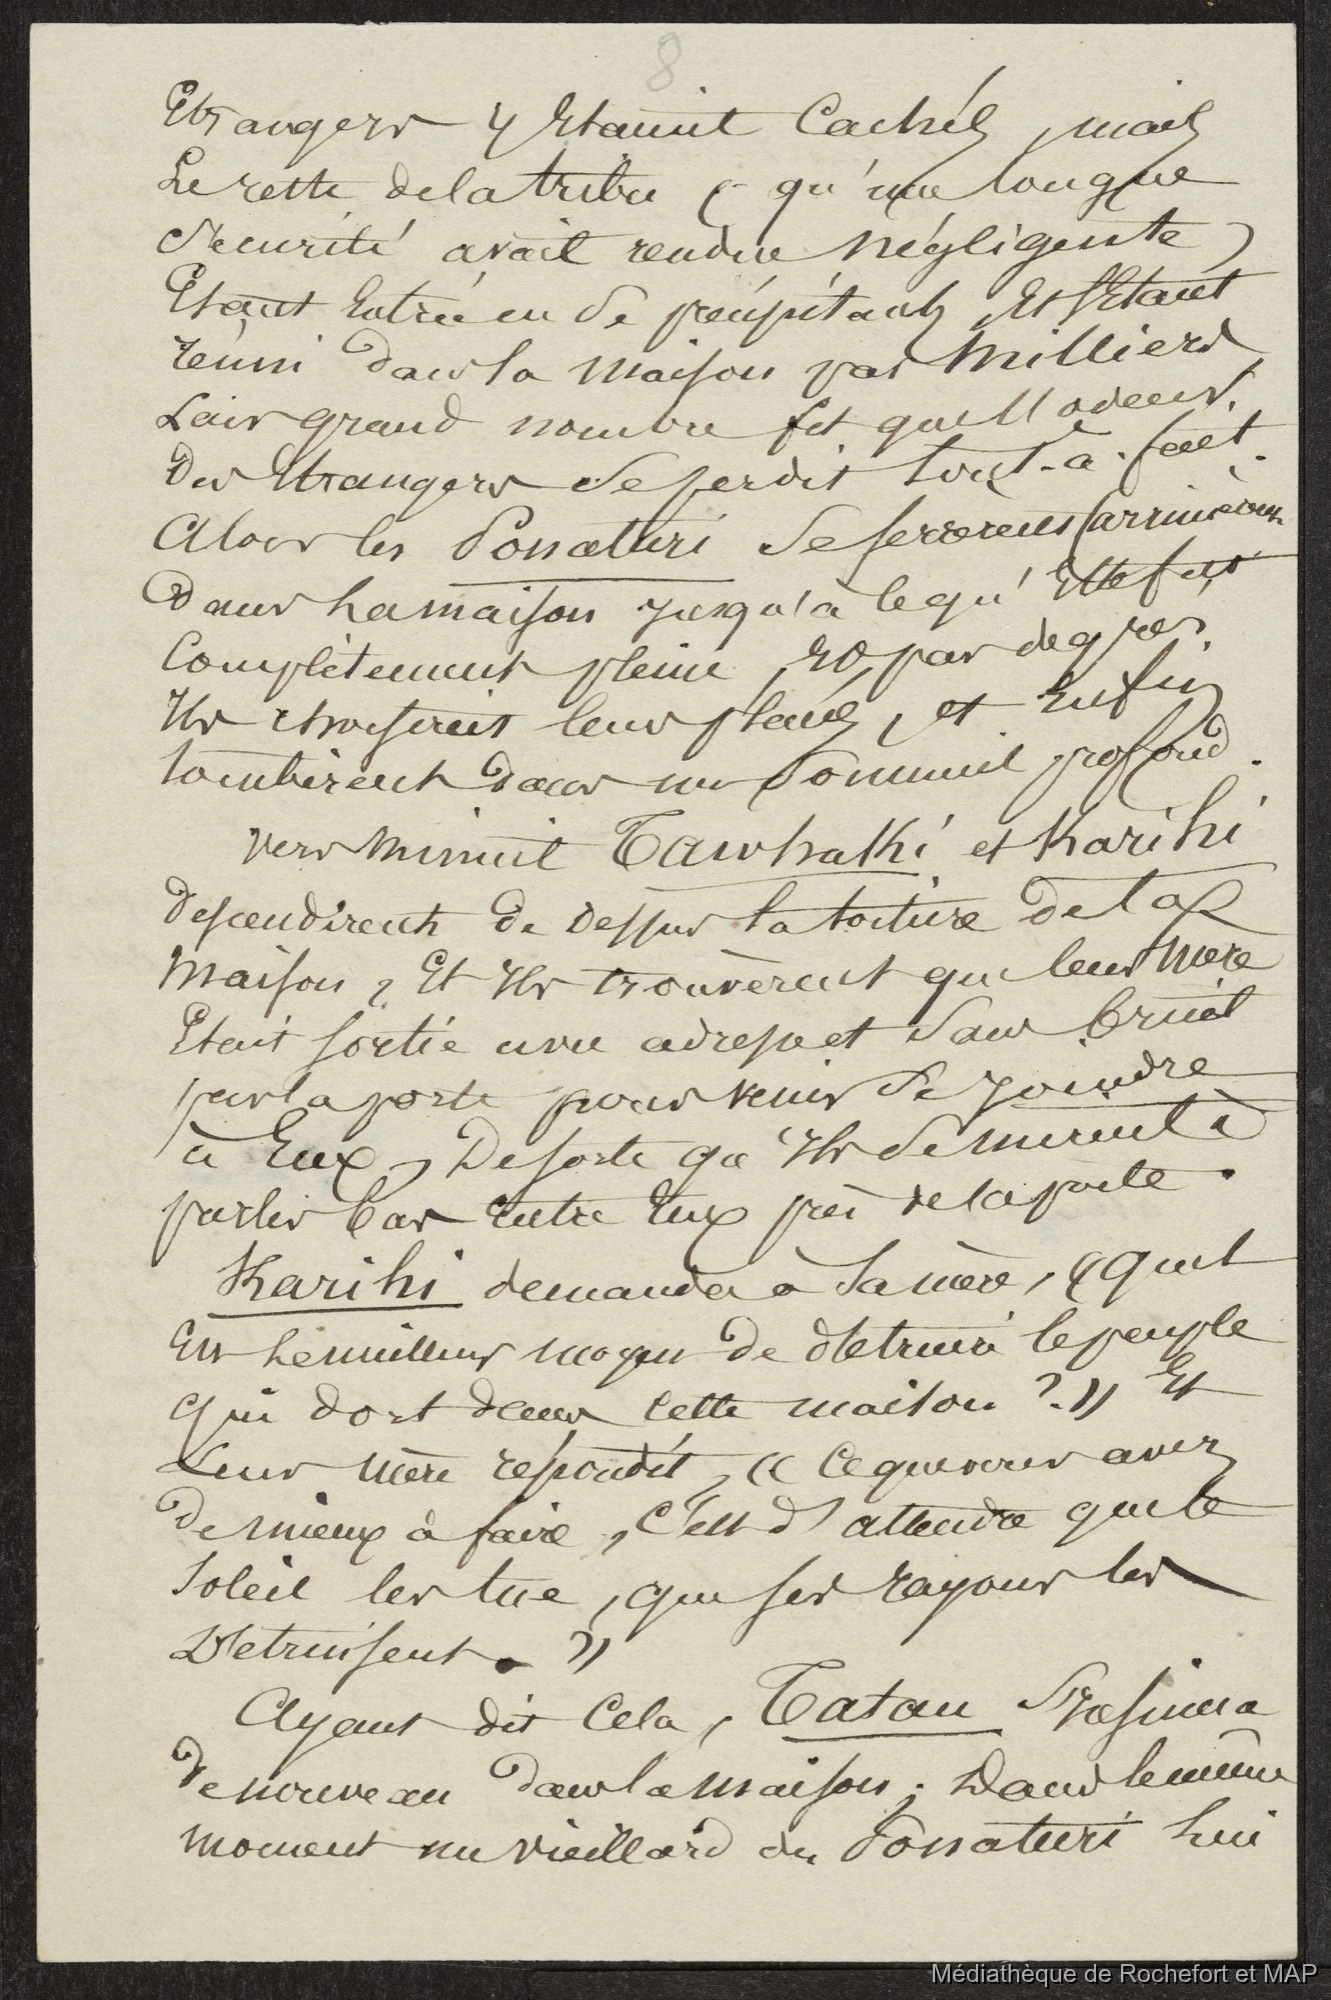 8
Etrangers y Etaient Cachés, mais
Le reste de la tribu (qu'une longue
Sécurité avait rendue négligente)
Etant Entrée en se précipitant, Et s'Etant
réuni dans la maison par Milliers,
Leur grand nombre fit que l'odeur
Des Etrangers se perdit tout-à-fait.
Alors les Ponaturi se serrèrent
Dans La maison jusqu'à ce qu'Elle fut
Complètement pleine, Et, par degrés,
Ils choisirent leurs places, et Enfin
tombèrent dans un Sommeil profond.
Vers Minuit Tawhaki et Karihi
descendirent de dessus la toiture De la
Maison, Et Ils trouvèrent que leur Mère
Etait sortie avec adresse et Sans bruit
par la porte pour venir Se joindre
à Eux, De sorte qu'Ils Se mirent à
parler bas Entre Eux près de la porte.
Karihi demanda à Sa mère, « Quel
Est Le meilleur moyen De détruire le peuple
qui dort dans Cette maison ? » Et
Leur Mère répondit, « Ce que vous avez
De Mieux à faire, C'est d'attendre que le
Soleil les tue, que ses rayons les
Détruisent. »
Ayant dit Cela, Tatau
De nouveau dans la Maison ; Dans le même
Moment un vieillard des Ponaturi Lui
Médiathèque de Rochefort et MAP